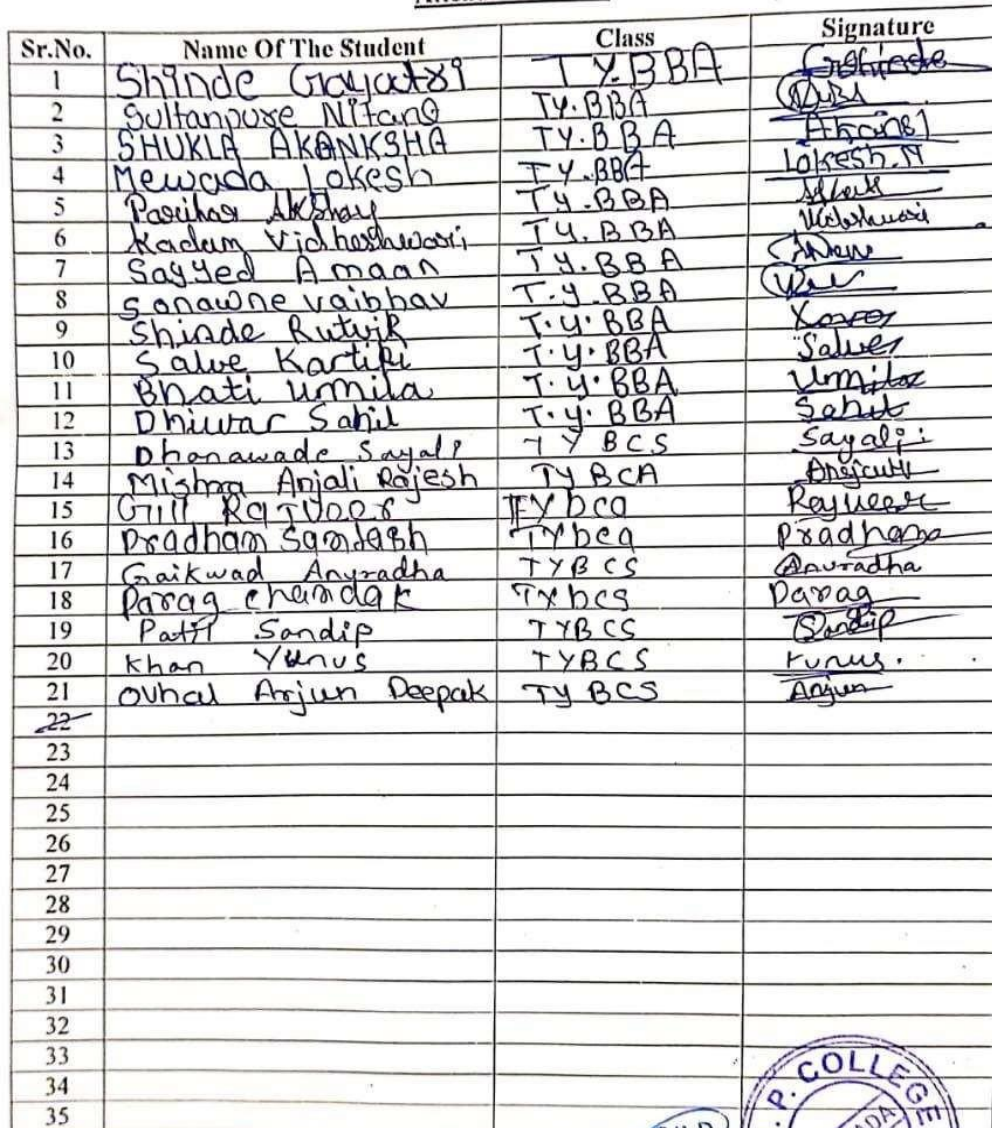 Sr.No. Name Of The Student Class Signature
1 Shinde Gayatri T Y.BBA GShinde
2 Sultanpure TY.BBA
3 SHUKLA AKANKSHA TY.BBA
4 Mewada Lokesh TY.BBA Lokesh.M
5 Parihar Akshay TY.BBA
6 Kadam Vidheshwari TY.BBA
7 Sayyed Amaan TY.BBA
8 Sonawne vaibhav T.Y.BBA
9 Shinde Rutvik T.Y.BBA
10 Salve Kartiki T.Y.BBA Salve
11 Bhati Urmila T.Y.BBA Urmila
12 Dhiwar Sahil T.Y.BBA Sahil
13 Dhanawade Sayali TY BCS Sayali
14 Mishra Anjali Rajesh TY BCA
15 Gill Rajveer TY bca Rajveer
16 Pradhan Sandesh TYbca Pradhan
17 Gaikwad Anuradha TYBCS Anuradha
18 Parag chandak TYbcs Parag
19 Patil Sandip TYBCS Sandip
20 Khan Yunus TYBCS Yunus.
21 Ovhal Arjun Deepak TY BCS Arjun
22
23
24
25
26
27
28
29
30
31
32
33
34
35
P. COLLEGE